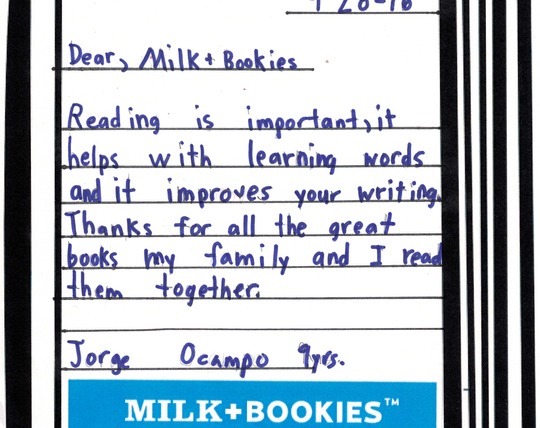 Dear, Milk + Bookies
Reading is important, it
helps with learning words
and it improves your writing.
Thanks for all the great
books my family and I read
them together.
Jorge Ocampo 9yrs.
MILK+BOOKIES™